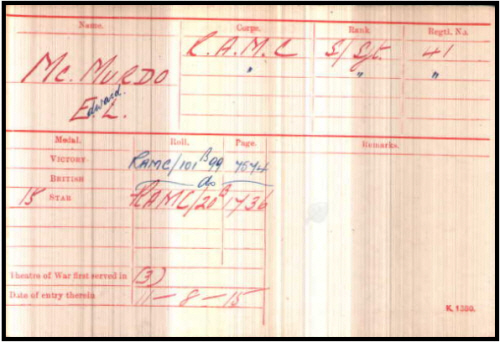 Name. Corps. Rank Regtl. No.
R.A.M.C S/Sjt. 41
Mc. MURDO " " "
Edward.
E. L.
Medal. Roll. Page. Remarks.
VICTORY RAMC/101 B99 7574
BRITISH do
15 STAR RAMC/20B 1736
Theatre of War first served in (3)
Date of entry therein 11-8-15
K. 1380.